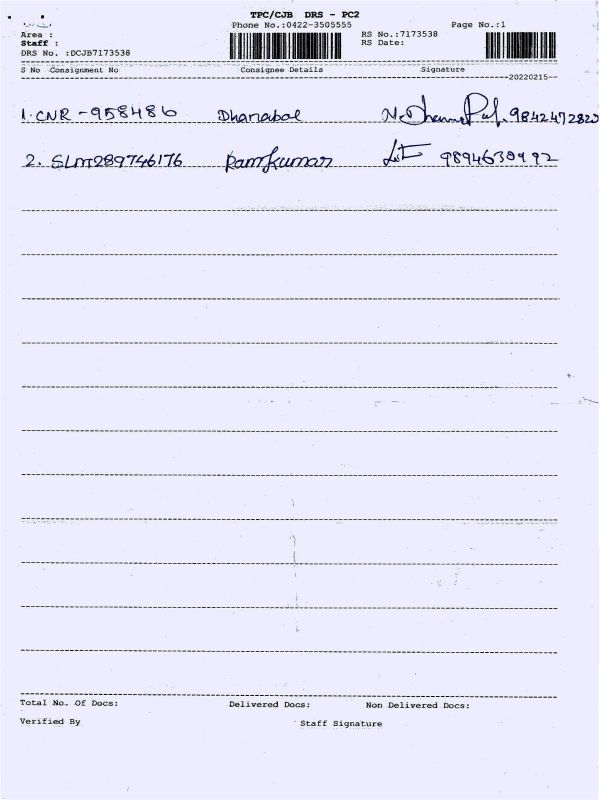 TPC/CJB DRS - PC2
Phone No.:0422-3505555 Page No.:1
Area : RS No.:7173538
Staff : RS Date:
DRS No. :DCJB7173538
S No Consignment No Consignee Details Signature
20220215
1. CNR - 958486 Dhanabal 9842472820
2. SLM289746176 Ramkumar 9894630992
Total No. Of Docs: Delivered Docs: Non Delivered Docs:
Verified By Staff Signature